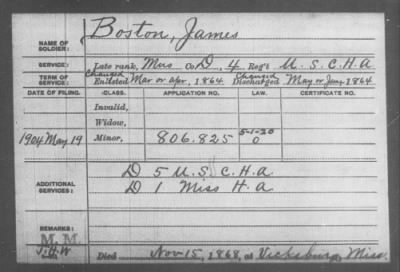 Boston, James
NAME OF SOLDIER:
SERVICE: Late rank, Mus Co. D, 4 Reg't U. S. C. H. A
TERM OF SERVICE: Changed Enlisted Mar or Apr, 1864 Changed Discharged May or June, 1864
DATE OF FILING. CLASS. APPLICATION NO. LAW. CERTIFICATE NO.
Invalid,
Widow,
5-1-20
1904 May 19 Minor, 806.825 0
ADDITIONAL SERVICES:
D 5 U. S. C. H. a.
D 1 Miss H. a
REMARKS:
M. M.
J.H.W Died Nov 15, 1868, at Vicksburg, Miss.